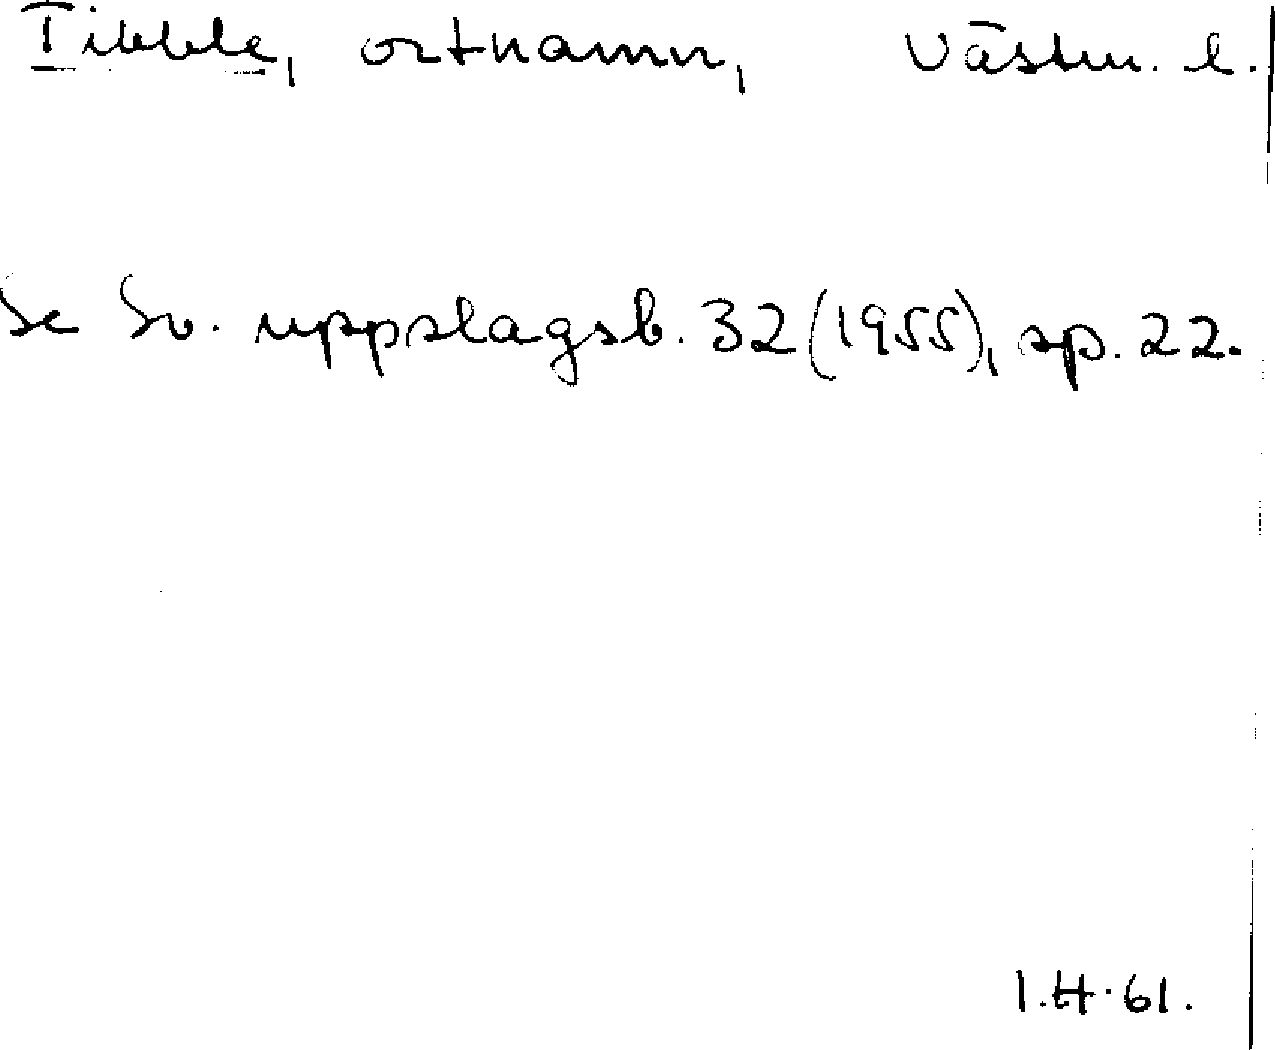 Tibble, ortnamn, Västm. l.
Se Sv. uppslagsb. 32 (1955), sp. 22.
I.H. 61.